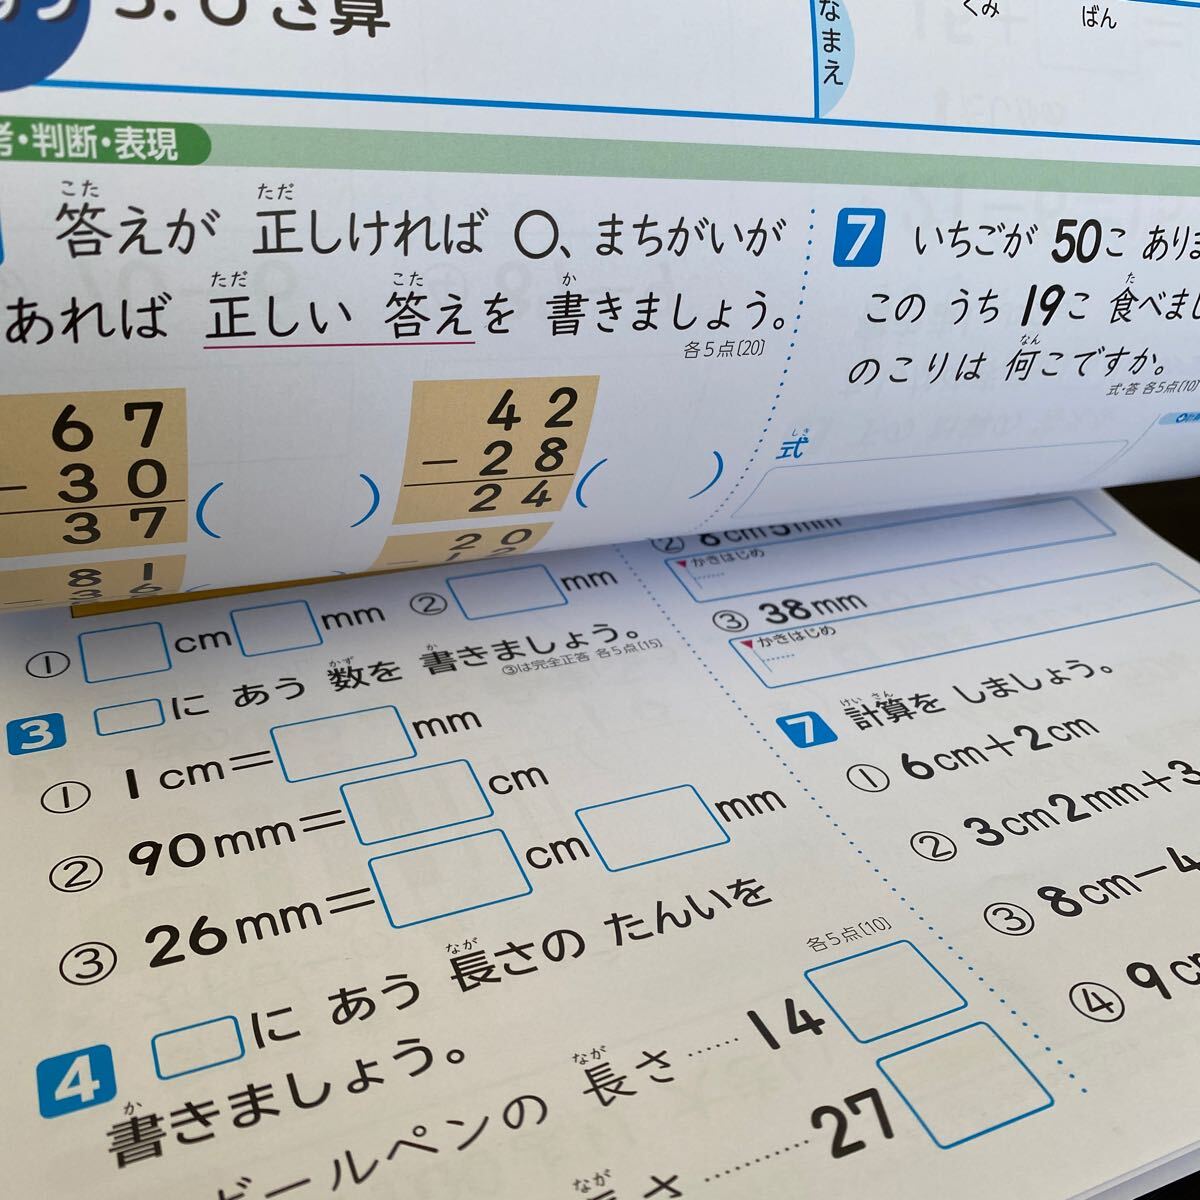 ひき算
くみ
ばん
なまえ
考・判断・表現
答えが 正しければ ○、まちがいが
あれば 正しい 答えを 書きましょう。
各5点[20]
67
−30
37
(   )
42
−28
24
(   )
81
−36
20
−12
7 いちごが 50こ ありま
この うち 19こ 食べまし
のこりは 何こですか。
式・答 各5点[10]
式
① □cm□mm ② □mm
3 □に あう 数を 書きましょう。
③は完全正答 各5点[15]
① 1cm=□mm
② 90mm=□cm
③ 26mm=□cm□mm
4 □に あう 長さの たんいを
書きましょう。
各5点[10]
ボールペンの 長さ……14□
長さ………27□
② 8cm5mm
かきはじめ
③ 38mm
かきはじめ
7 計算を しましょう。
① 6cm+2cm
② 3cm2mm+3
③ 8cm−4
④ 9c